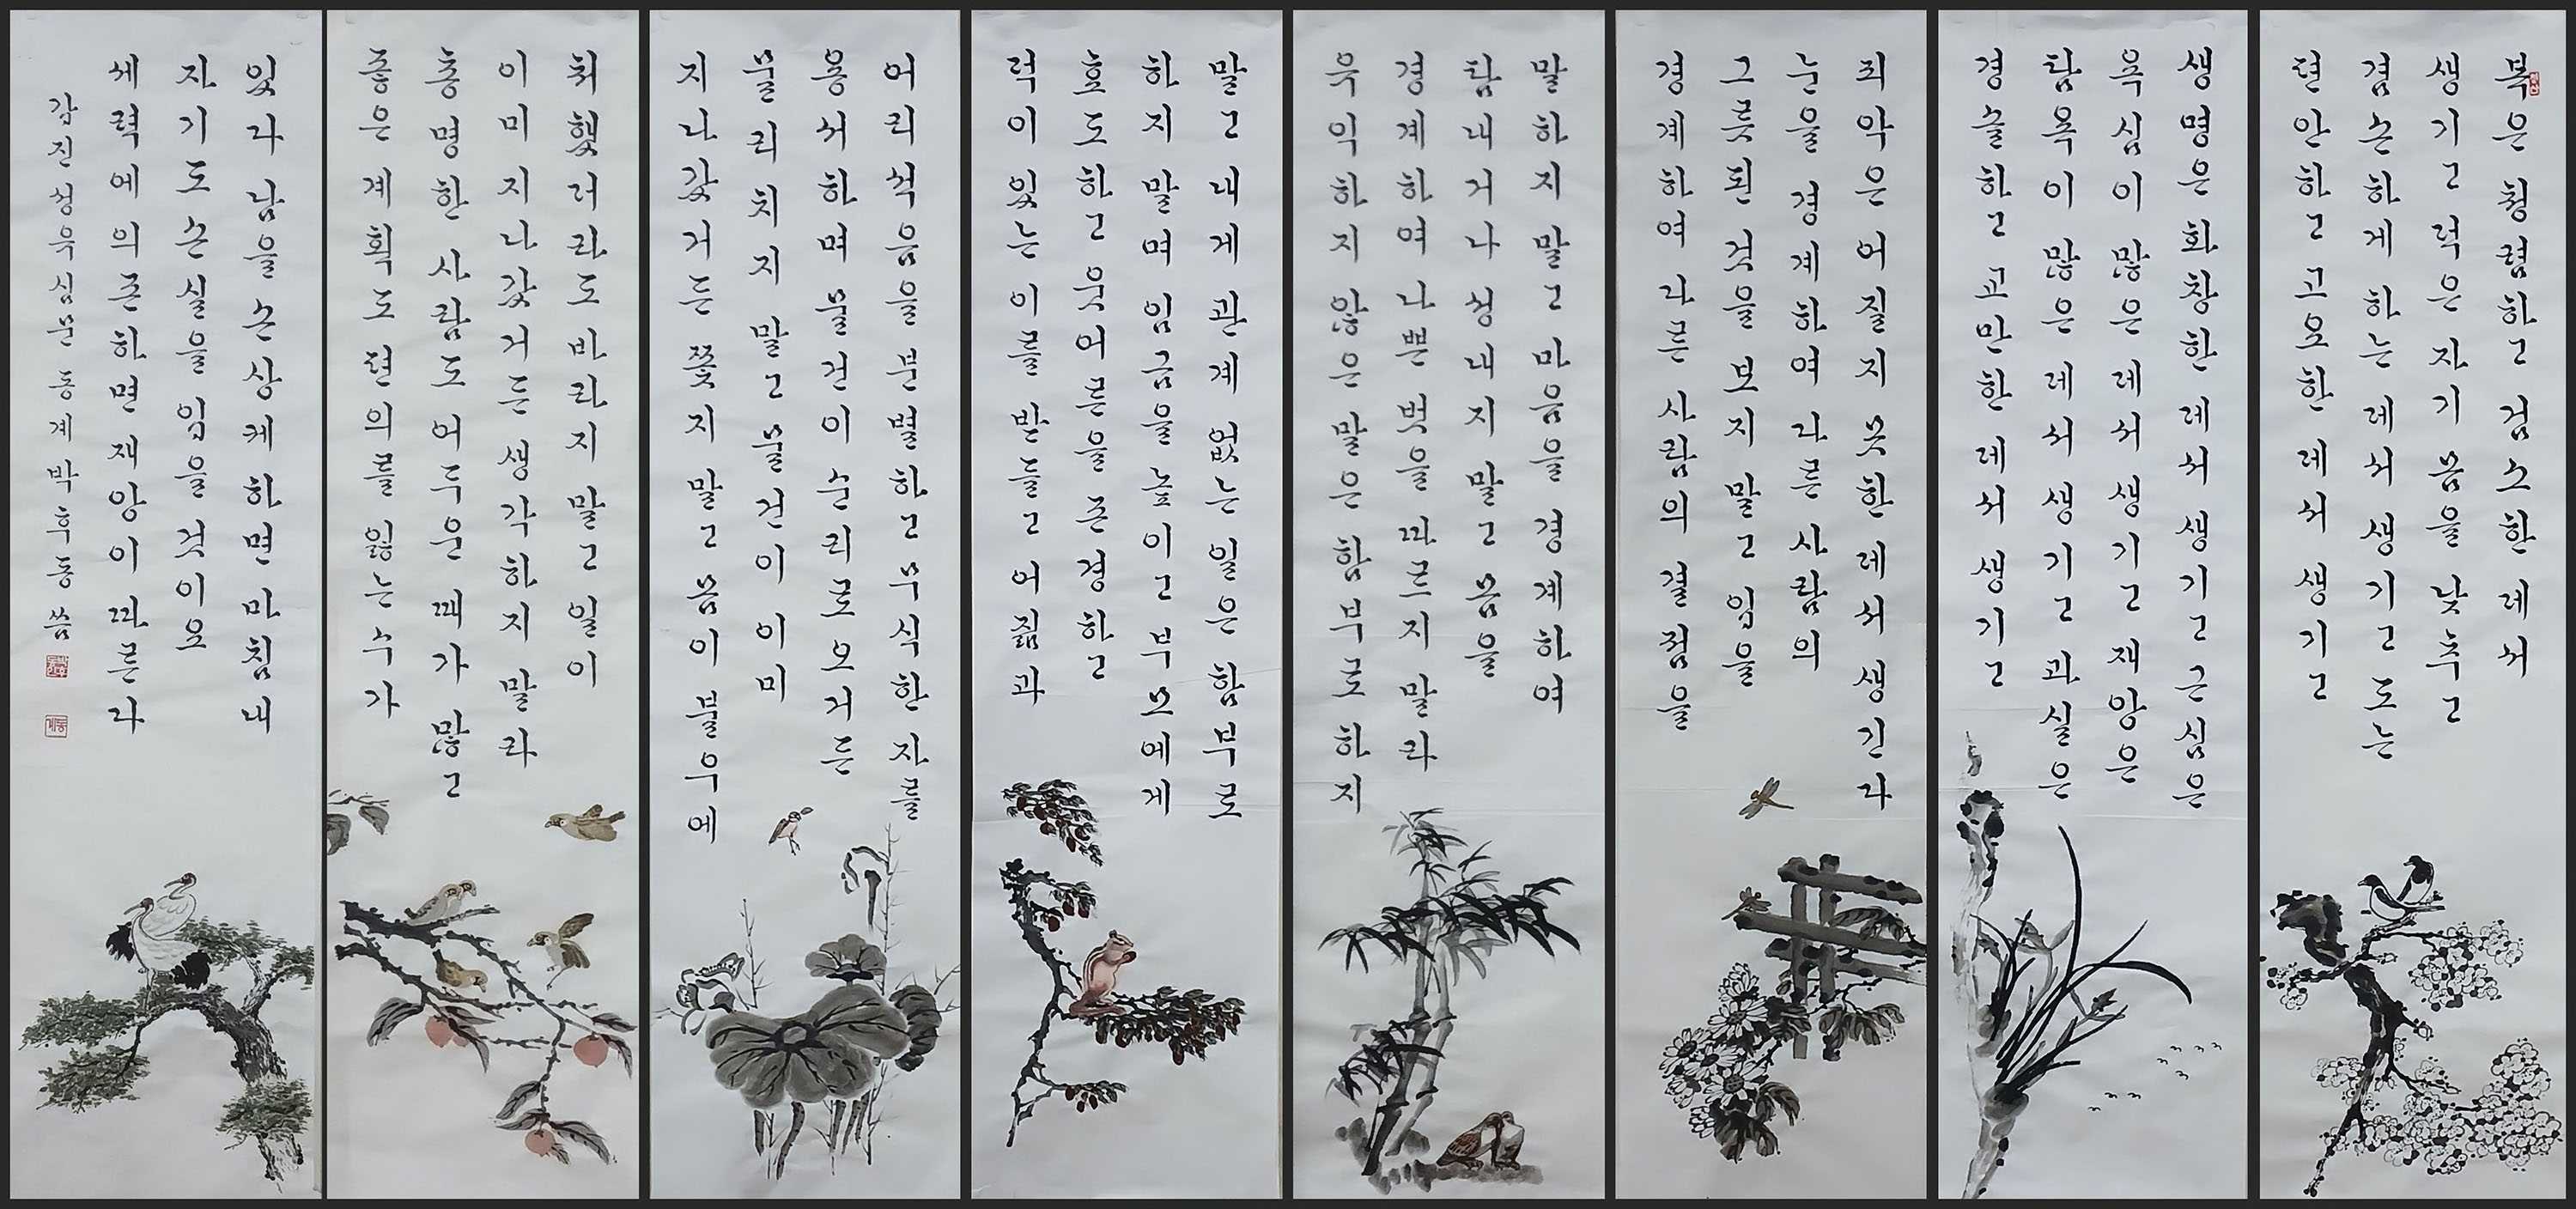 복은 청렴하고 검소한 데서
생기고 덕은 자기 몸을 낮추고
겸손하게 하는 데서 생기고 도는
편안하고 고요한 데서 생기고
생명은 화창한 데서 생기고 근심은
욕심이 많은 데서 생기고 재앙은
탐욕이 많은 데서 생기고 과실은
경솔하고 교만한 데서 생기고
죄악은 어질지 못한 데서 생긴다
눈을 경계하여 다른 사람의
그릇된 것을 보지 말고 입을
경계하여 다른 사람의 결점을
말하지 말고 마음을 경계하여
탐내거나 성내지 말고 몸을
경계하여 나쁜 벗을 따르지 말라
유익하지 않은 말은 함부로 하지
말고 내게 관계 없는 일은 함부로
하지 말며 임금을 높이고 부모에게
효도하고 웃어른을 존경하고
덕이 있는 이를 받들고 어짊과
어리석음을 분별하고 무식한 자를
용서하며 물건이 순리로 오거든
물리치지 말고 물건이 이미
지나갔거든 쫓지 말고 몸이 불우에
처했더라도 바라지 말고 일이
이미 지나갔거든 생각하지 말라
총명한 사람도 어두운 때가 많고
좋은 계획도 편의를 잃는 수가
있다 남을 손상케 하면 마침내
자기도 손실을 입을 것이요
세력에 의존하면 재앙이 따른다
갑진 성유심문 동계 박후동 씀